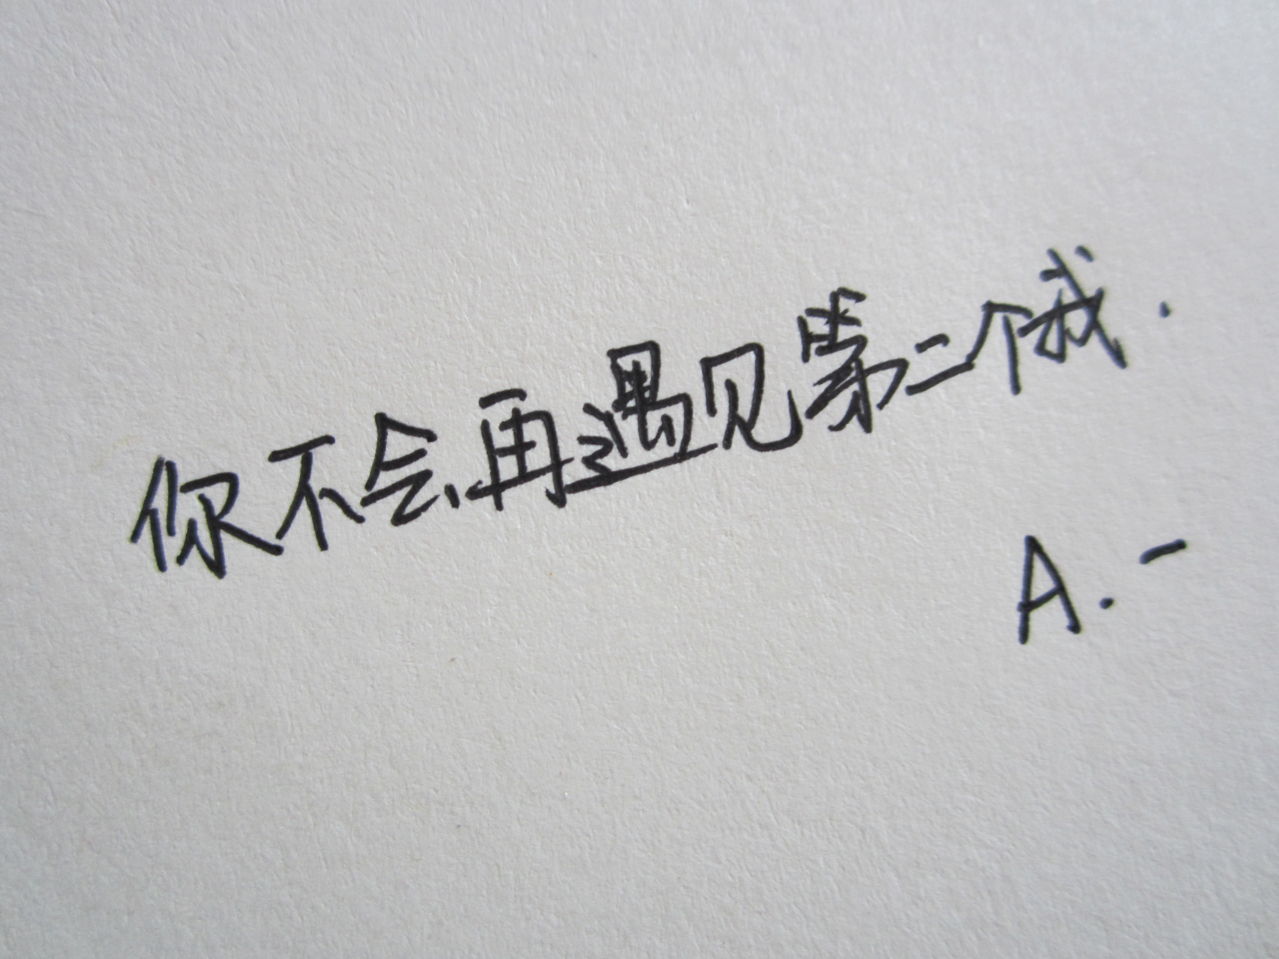 你不会再遇见第二个我.
A.-